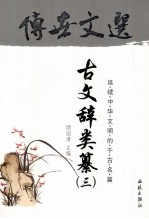 傳世文選
延续中华文明的千古名篇
古文辞类纂(三)
主编
西苑出版社